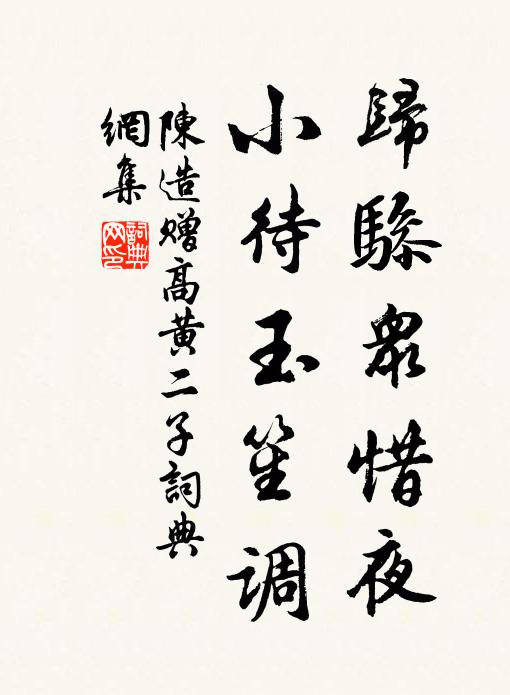 歸驂衆惜夜
小待玉笙调
陳造贈高黄二子詞典
網集
詞典
网印